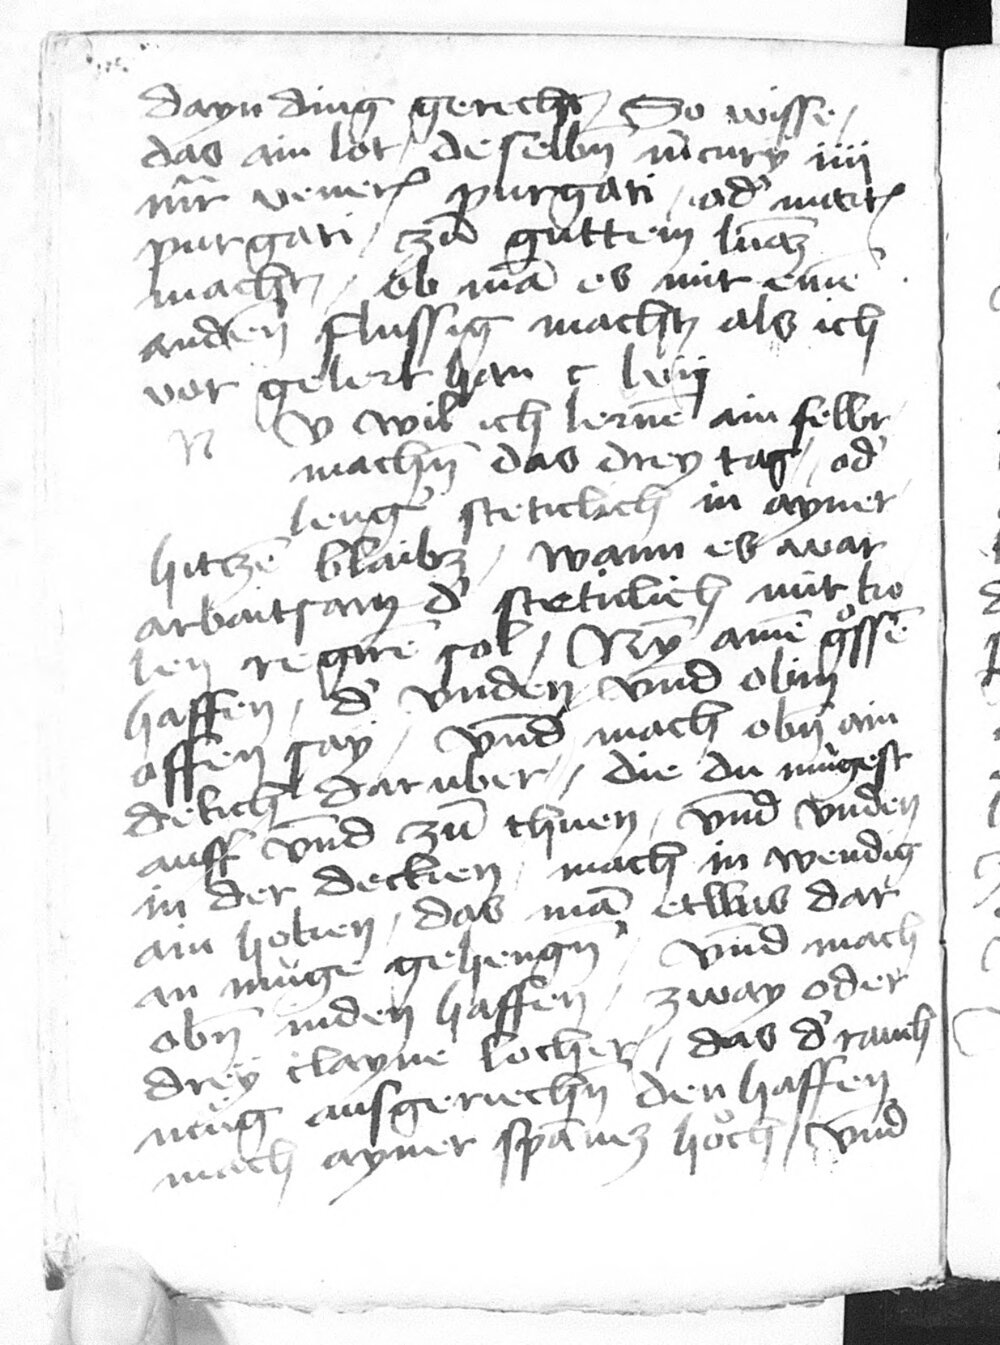 dayn ding gerecht / So wisse /
das ain lot / deselbn̄ m̄cury iiij
mr̄ veneris purgati / od' martis
purgati / zū guttem lūaz
macht / ob mā es mit eine'
anden̄ flussig macht als ich
vor gelert han c lviij
N v wil ich lerne ain fellbr
machn̄ das drey tag / od'
lenge' steticlich in ayner
hitzē blaibz / wann es war
arbaitsam d' steticlich mit ko
len regirē sol / Ny ainē gossē
haffen / d' vnden vnd obin
offen say / vnd mach obn̄ ain
dekich daruber / die du mügest
auff vnd zū thuen / vnd vnden
in der deckien / mach in wendig
ain hoken / das mā etwas dar
an müge gehengn̄ / vnd mach
obn̄ inden haffen / zway oder
drey clayne locher / das d' rauch
müg ausgeriechn̄ den haffen
mach ayner spānz hoch / vnd